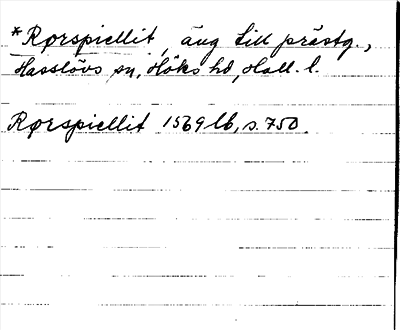 *Rørspiellit, äng till prästg.,
Hasslövs sn, Höks hd, Hall. l.
Rørspiellit 1569 lb, s. 750.